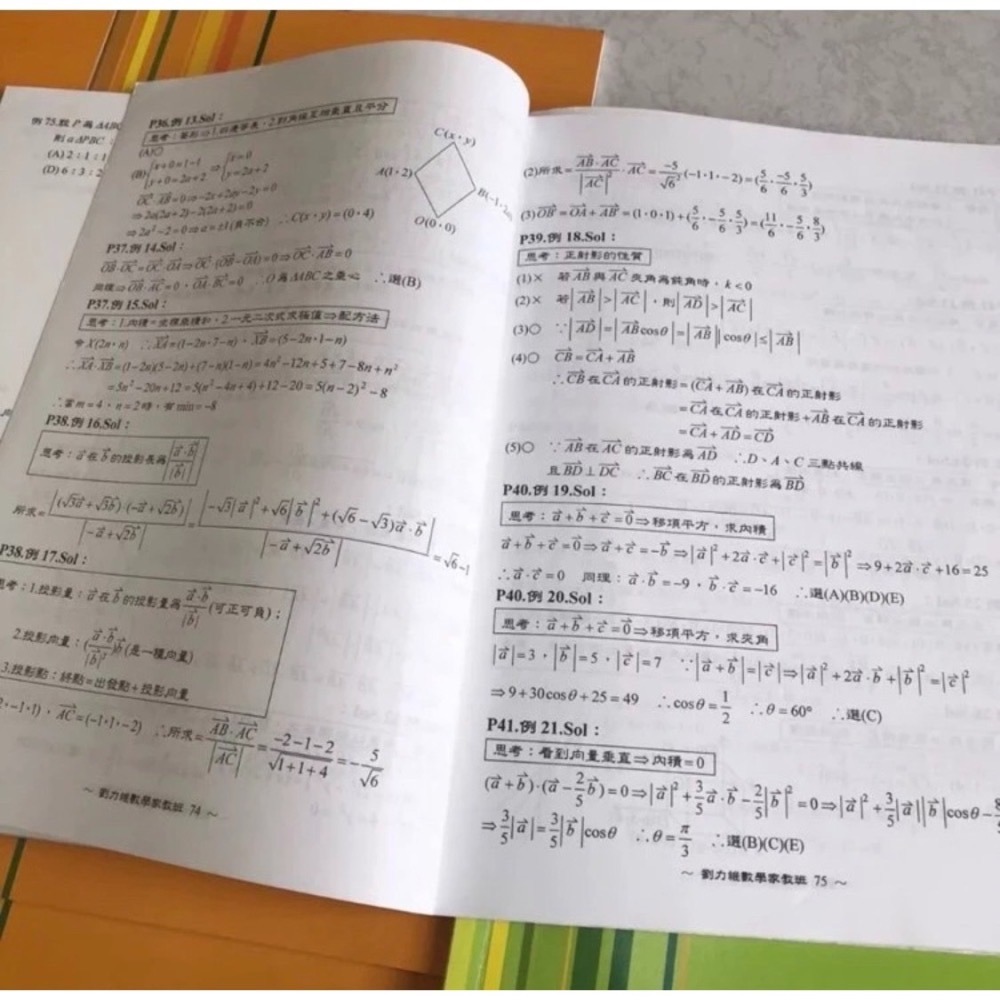 例75.設P為ΔABC
則aΔPBC
(A) 2:1:1
(D) 6:3:2
P36.例 13.Sol:
思考:菱形⇒1.四邊等長,2.對角線互相垂直及平分
(A)○
(B) {x+0=1-1 ⇒ {x=0
{y+0=2a+2 {y=2a+2
OC⃗·AB⃗=0⇒-2x+2ay-2y=0
⇒2a(2a+2)-2(2a+2)=0
⇒2a²-2=0⇒a=±1(負不合) ∴C(x,y)=(0,4)
C(x,y)
A(1,2)
B(-1,2a)
O(0,0)
P37.例 14.Sol:
OB⃗·OC⃗=OC⃗·OA⃗⇒OC⃗·(OB⃗-OA⃗)=0⇒OC⃗·AB⃗=0
同理⇒OB⃗·AC⃗=0,OA⃗·BC⃗=0 ∴O為ΔABC之垂心 ∴選(B)
P37.例 15.Sol:
思考:1.內積=坐標乘積和,2.一元二次式求極值⇒配方法
令X(2n,n) ∴XA⃗=(1-2n,7-n),XB⃗=(5-2n,1-n)
∴XA⃗·XB⃗=(1-2n)(5-2n)+(7-n)(1-n)=4n²-12n+5+7-8n+n²
=5n²-20n+12=5(n²-4n+4)+12-20=5(n-2)²-8
∴當m=4,n=2時,有min=-8
P38.例 16.Sol:
思考:a⃗在b⃗的投影長為|a⃗·b⃗|/|b⃗|
所求=|(√3a⃗+√3b⃗)·(-a⃗+√2b⃗)|/|-a⃗+√2b⃗|=|-√3|a⃗|²+√6|b⃗|²+(√6-√3)a⃗·b⃗|/|-a⃗+√2b⃗|=√6-1
P38.例 17.Sol:
思考:1.投影量:a⃗在b⃗的投影量為a⃗·b⃗/|b⃗|(可正可負);
2.投影向量:(a⃗·b⃗/|b⃗|²)b⃗(是一種向量)
3.投影點:終點=出發點+投影向量
2,-1,1),AC⃗=(-1,1,-2) ∴所求=AB⃗·AC⃗/|AC⃗|=(-2-1-2)/√(1+1+4)=-5/√6
~ 劉力維數學家教班 74 ~
(2)所求=(AB⃗·AC⃗/|AC⃗|²)·AC⃗=(-5/√6²)(-1,1,-2)=(5/6,-5/6,5/3)
(3)OB⃗=OA⃗+AB⃗=(1,0,1)+(5/6,-5/6,5/3)=(11/6,-5/6,8/3)
P39.例 18.Sol:
思考:正射影的性質
(1)× 若AB⃗與AC⃗夾角為鈍角時,k<0
(2)× 若|AB⃗|>|AC⃗|,則|AD⃗|>|AC⃗|
(3)○ ∵|AD⃗|=|AB⃗cosθ|=|AB⃗||cosθ|≤|AB⃗|
(4)○ CB⃗=CA⃗+AB⃗
∴CB⃗在CA⃗的正射影=(CA⃗+AB⃗)在CA⃗的正射影
=CA⃗在CA⃗的正射影+AB⃗在CA⃗的正射影
=CA⃗+AD⃗=CD⃗
(5)○ ∵AB⃗在AC⃗的正射影為AD⃗ ∴D、A、C三點共線
且BD⃗⊥DC⃗ ∴BC⃗在BD⃗的正射影為BD⃗
P40.例 19.Sol:
思考:a⃗+b⃗+c⃗=0⃗⇒移項平方,求內積
a⃗+b⃗+c⃗=0⃗⇒a⃗+c⃗=-b⃗⇒|a⃗|²+2a⃗·c⃗+|c⃗|²=|b⃗|²⇒9+2a⃗·c⃗+16=25
∴a⃗·c⃗=0 同理:a⃗·b⃗=-9,b⃗·c⃗=-16 ∴選(A)(B)(D)(E)
P40.例 20.Sol:
思考:a⃗+b⃗+c⃗=0⃗⇒移項平方,求夾角
|a⃗|=3,|b⃗|=5,|c⃗|=7 ∵|a⃗+b⃗|=|c⃗|⇒|a⃗|²+2a⃗·b⃗+|b⃗|²=|c⃗|²
⇒9+30cosθ+25=49 ∴cosθ=1/2 ∴θ=60° ∴選(C)
P41.例 21.Sol:
思考:看到向量垂直⇒內積=0
(a⃗+b⃗)·(a⃗-2/5b⃗)=0⇒|a⃗|²+3/5a⃗·b⃗-2/5|b⃗|²=0⇒|a⃗|²+3/5|a⃗||b⃗|cosθ-8
⇒3/5|a⃗|=3/5|b⃗|cosθ ∴θ=π/3 ∴選(B)(C)(E)
~ 劉力維數學家教班 75 ~